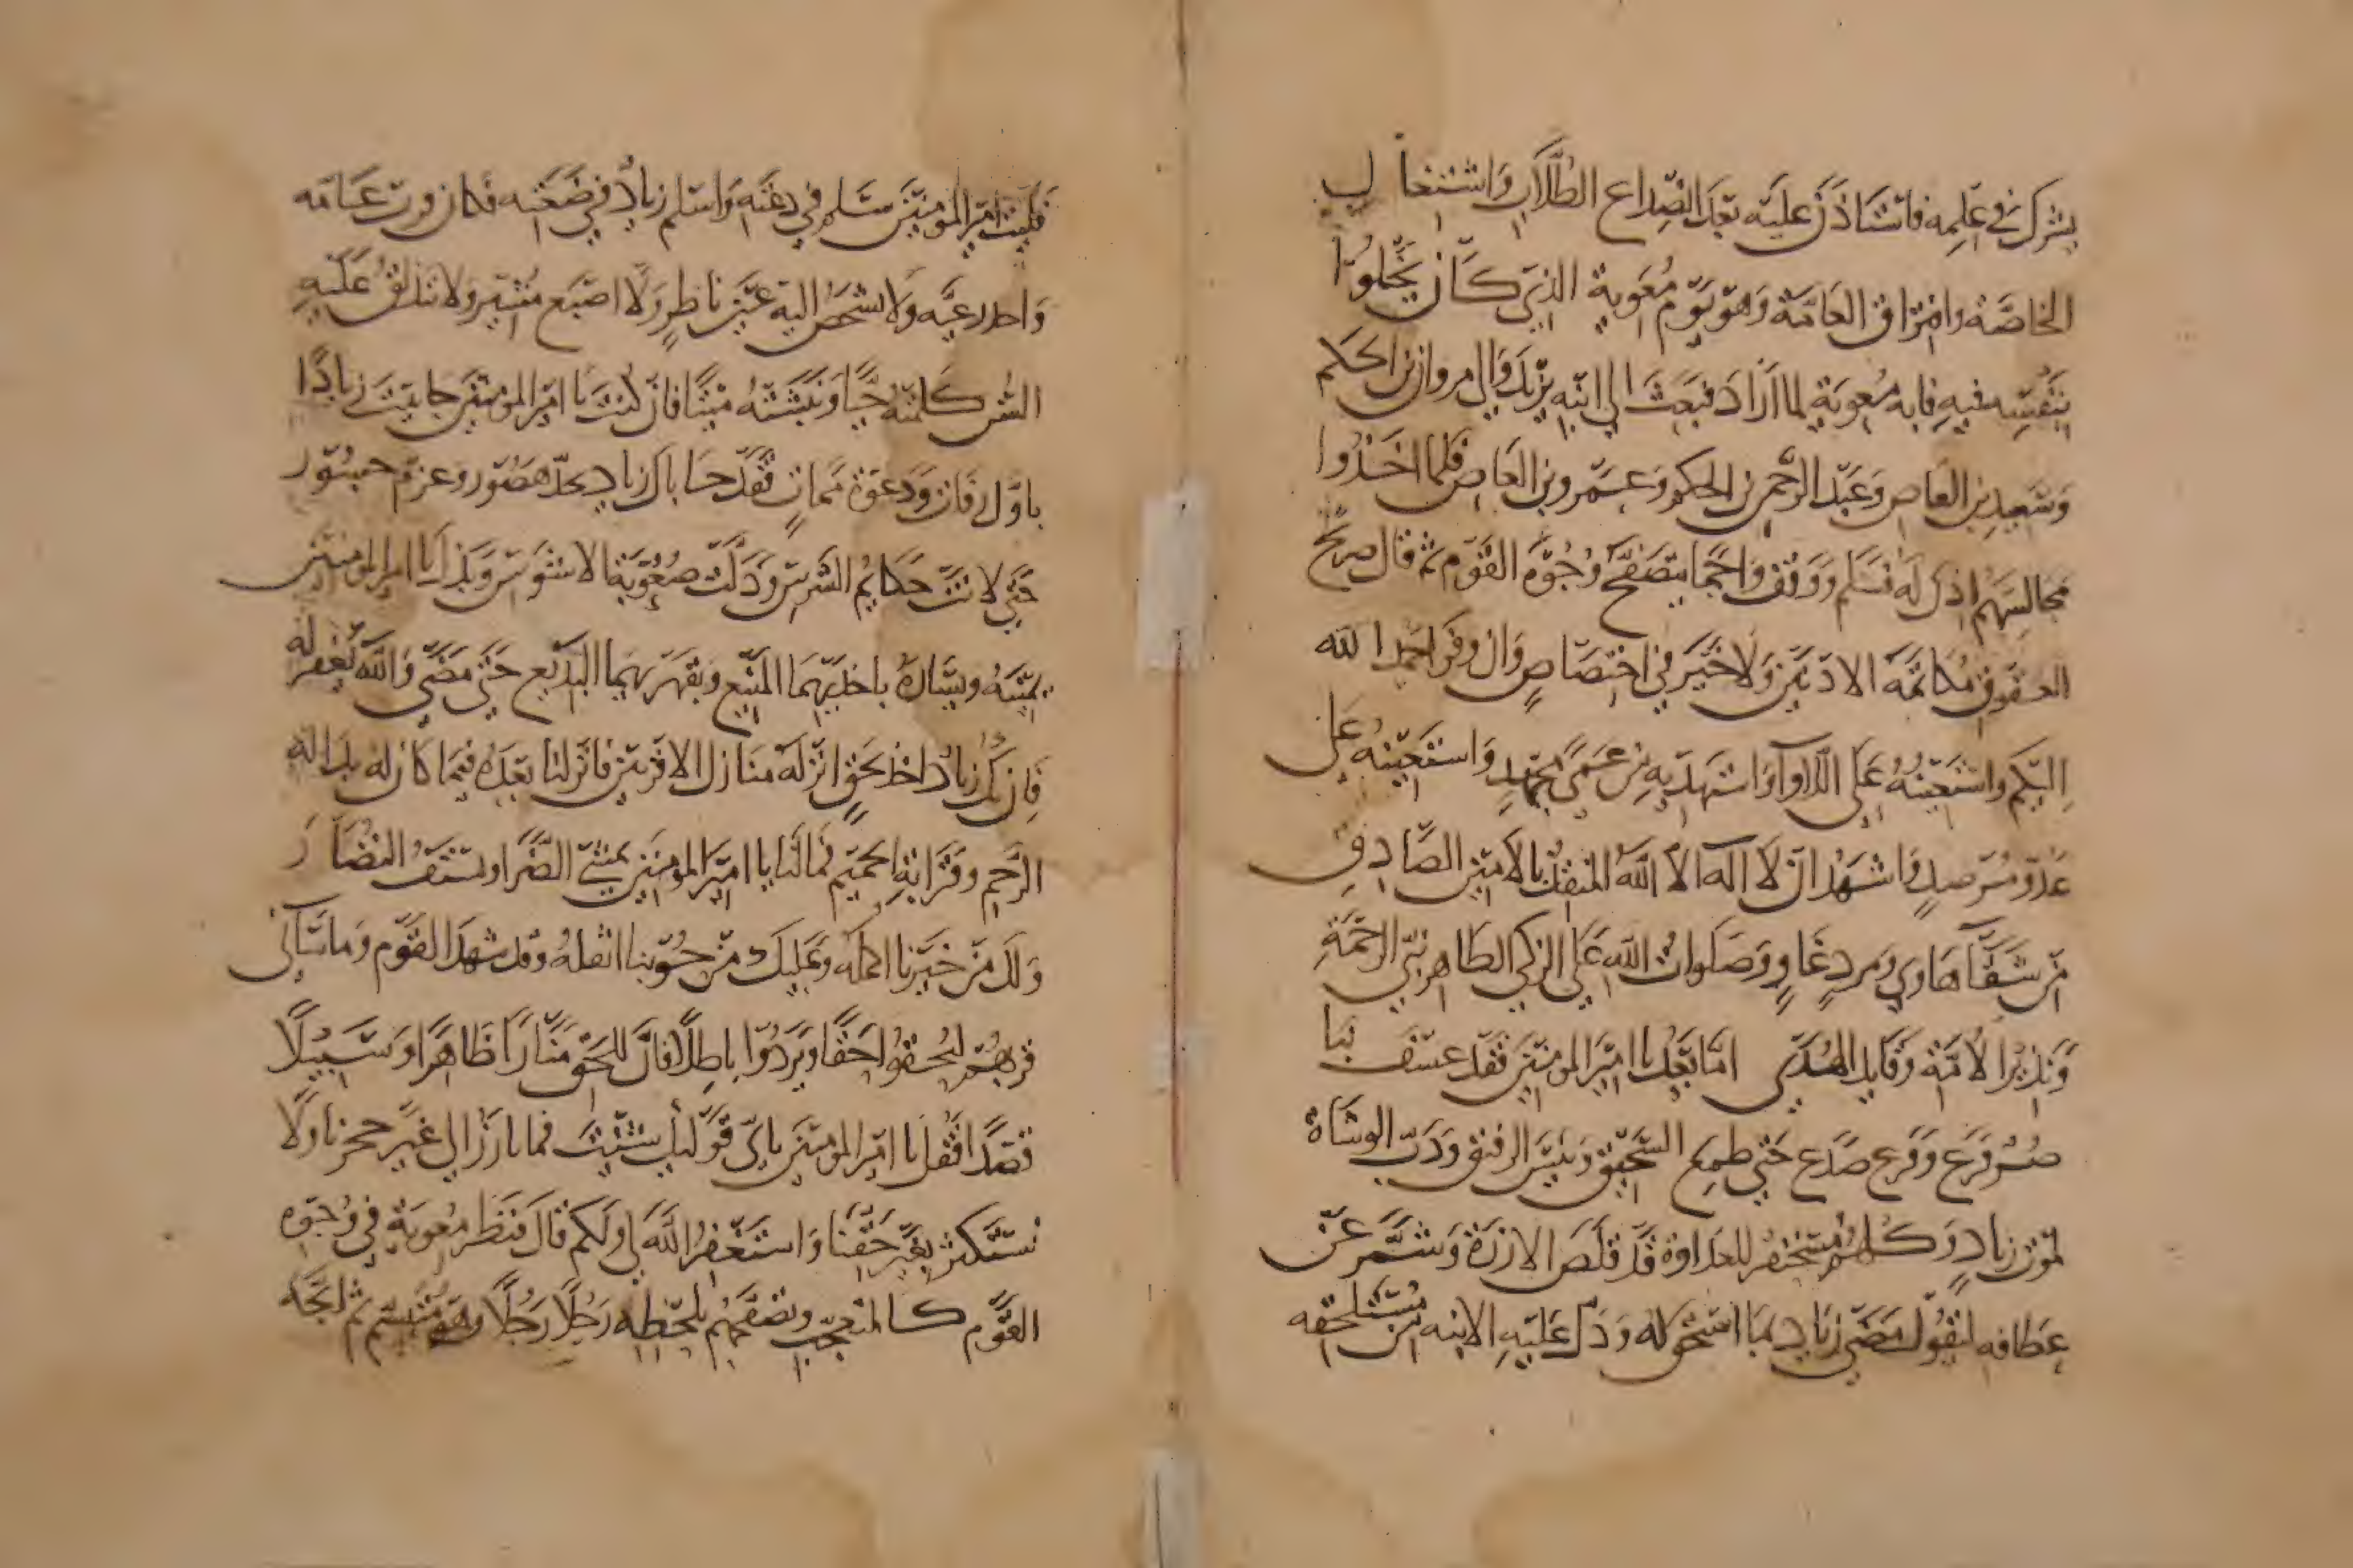 يشرك في علمه فاستاذن عليه بعد انصداع الطلاب واشتغال
الخاصة وافتراق العامة وهو يوم معوية الذي كان يخلوا
بنفسه فيه فابه معوية لما اراد فبعث الى ابنه يزيد والى مروان بن الحكم
وسعيد بن العاص وعبد الرحمن بن الحكم وعمرو بن العاص فلما اخذوا
مجالسهم اذن له فسلم ووقف واجما يتصفح وجوه القوم ثم قال صريح
العقوق مكاتمة الادنين ولا خير في اختصاص وان وفر احمد الله
اليكم واستعينه على اللاوآ واستهديه من عمى مجهد واستعينه على
عدو مرصد واشهد ان لا اله الا الله المنقذ بالامين الصادق
من شفا هاو ومن رد غاو وصلوات الله على الزكي الطاهر نبي الرحمة
ونذير الامة وقايد الهدى اما بعد يا امير المومنين فقد عسف بنا
ظن فرع وفرع صدع حتى طمع السحيق وييس الرفيق ودب الوشاة
بموت زياد وكلهم متحفز للعداوة قد قلص الازرة وشمر عن
عطافه ليقول مضى زياد بما استحق له ودل على الابنه من مستلحقه
فليت امير المومنين سلم في دعته واسلم زياد في ضعته فكان ترب عامة
واحد رعيه ولا تشخص اليه عين ناظر ولا اصبع مشير ولا تندلق عليه
السن كلمته حيا ونبشته ميتا فان كنت يا امير المومنين حابيت زيادا
باول رفات ودعوة ممات فقد حاباك زياد بجد هصور وعزم جسور
حتى لانت حكايم الشرس وذلت صعوبة الاشوس وبذل يا امير المومنين
يمينه ويساره ياخذ بهما المنيع ويقهر بهما البديع حتى مضى والله يغفر له
فان يكن زياد اخذ بحق انزله منازل الاقربين فان لنا بعده فيما كان له بدالة
الرحم وقرابة الحميم فما لنا يا امير المومنين نمشي الضرا ونستف النضار
ولك من خيرنا اكمله وعليك من حوبنا اثقله وقد شهد القوم وما ساني
قربهم ليحقوا حقا ويردوا باطلا فان للحق منارا ظاهرا وسبيلا
قصدا فقل يا امير المومنين باي قوليك شئت فما نارز الى غير جحرنا ولا
نستكثر بغير حقنا واستغفر الله لي ولكم قال فنظر معوية في وجوه
القوم كالمتعجب وتصفحهم بلحظه رجلا رجلا وهو متبسم ثم اتجه